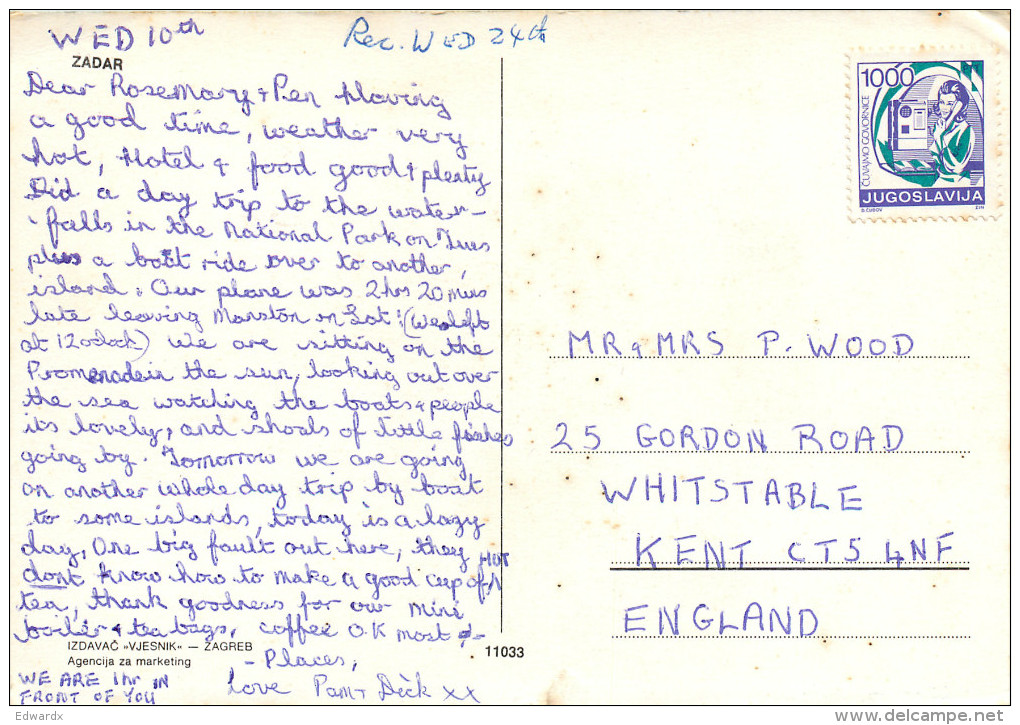 WED 10th
Rec. WED 24th
ZADAR
Dear Rosemary + Pen Having
a good time, weather very
hot, Hotel & food good & plenty
Did a day trip to the water-
falls in the National Park on Tues
plus a boat ride over to another,
island. Our plane was 2hrs 20 mins
late leaving Manston on Sat: (We left
at 12 oclock) We are sitting on the
Promenade in the sun, looking out over
the sea watching the boats & people
its lovely, and shoals of little fishes
going by. Tomorrow we are going
on another whole day trip by boat
to some islands, today is a lazy
day, One big fault out here, they
dont know how to make a good cup of HOT
tea, thank goodness for our mini
boiler & tea bags, coffee O.K most
- Places,
Love Pam + Dick xx
WE ARE 1hr IN
FRONT OF YOU
IZDAVAČ »VJESNIK« — ZAGREB
Agencija za marketing
11033
1000
PTT
ČUVAJMO GOVORNICE
JUGOSLAVIJA
ZIN
MR & MRS P. WOOD
25 GORDON ROAD
WHITSTABLE
KENT CT5 4NF
ENGLAND
Edwardx
www.delcampe.net